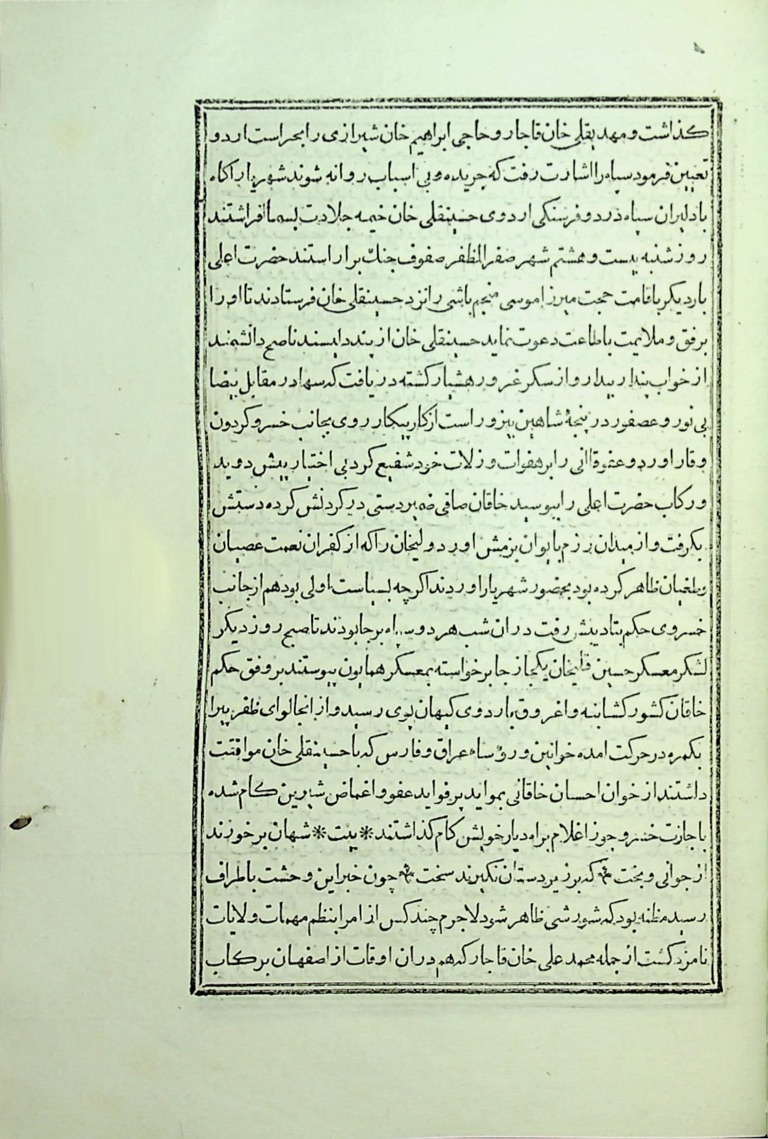 کذاشت و مهدیقلی خان قاجار و حاجی ابراهیم خان شیرازی را بحراست اردو
تعیین فرمود سپاه را اشارت رفت که جریده و بی اسباب روانه شوند شهریار اکاه
با دلیران سپاه در دو فرسنکی اردوی حسینقلی خان خیمه جلادت بسما افراشتند
روز شنبه بیست و هشتم شهر صفر المظفر صفوف جنک براراستند حضرت اعلی
بار دیکر با قامت حجت میرزا موسی منجم باشی را نزد حسینقلی خان فرستادند تا او را
برفق و ملایمت باطاعت دعوت نماید حسینقلی خان از پند دلپسند ناصح دانشمند
از خواب پندار بیدار و از سکر غرور هشیار کشته دریافت که سها در مقابل بیضا
بی نور و عصفور در پنجهٔ شاهین بیزور است از کار پیکار روی بجانب خسرو کردون
وقار اورد و عفو قاانی را بر هفوات و زلات خود شفیع کرد بی اختیار پیش دوید
و رکاب حضرت اعلی را ببوسید خاقان صافی ضمیر دستی در کردنش کرده دستش
بکرفت و از میدان رزم بایوان بزمش اورد دولیخان را که از کفران نعمت عصیان
و طغیان ظاهر کرده بود بحضور شهریار اوردند اکرچه بسیاست اولی بود هم از جانب
خسروی حکم بتادیبش رفت دران شب هر دو سپاه برجا بودند تا صبح روز دیکر
لشکر معسکر حسین قلیخان یکجا از جا برخواسته بمعسکر همایون پیوستند بر وفق حکم
خاقان کشورکشا بنه و اغروق باردوی کیهان پوی رسید و از انجا لوای ظفر پیرا
بکمره در حرکت امده خوانین و رؤساء عراق و فارس که با حسینقلی خان موافقت
داشتند از خوان احسان خاقانی بموايد پر فواید عفو و اغماض شیرین کام شده
باجازت خسرو جوز اغلام براه دیار خویش کام کذاشتند * بیت * شهان برخورند
از جوانی و بخت * که بر زیردستان نکیرند سخت * چون خبر این وحشت باطراف
رسید مظنه بود که شورشی ظاهر شود لاجرم چند کس از امرا بنظم مهمات ولایات
نامزد کشت از جمله محمد علی خان قاجار که هم دران اوقات از اصفهان برکاب